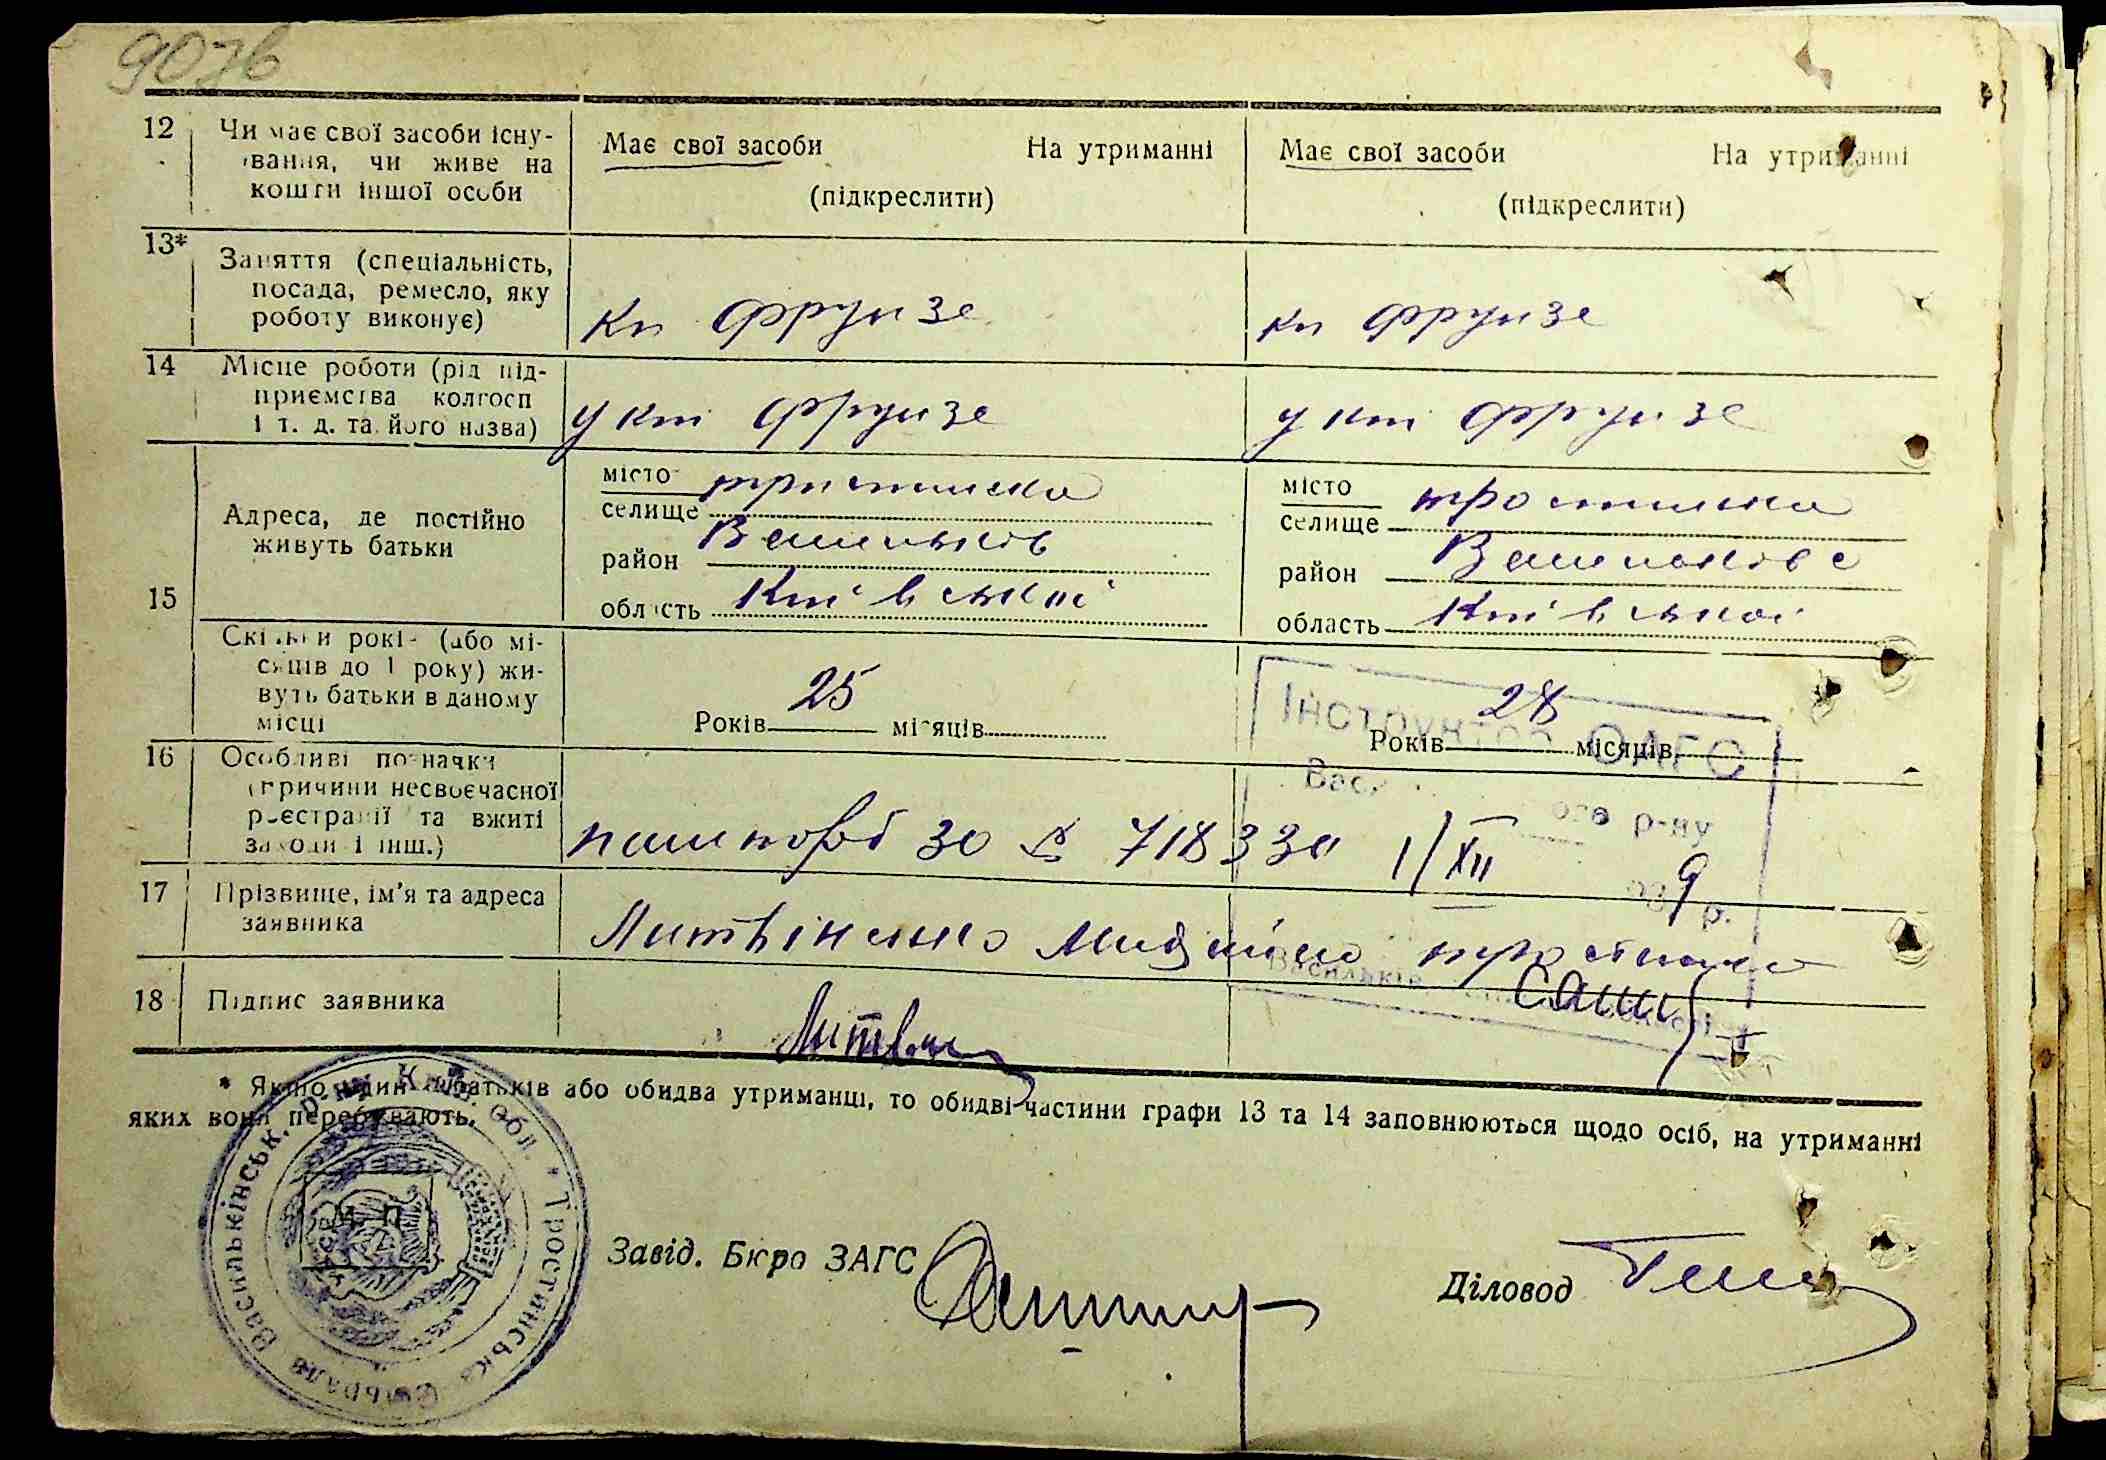 907в
12 Чи має свої засоби існу-
вання, чи живе на
кошти іншої особи
Має свої засоби На утриманні
(підкреслити)
Має свої засоби На утриманні
(підкреслити)
13* Заняття (спеціальність,
посада, ремесло, яку
роботу виконує)
кп Фрунзе
кп Фрунзе
14 Місце роботи (рід під-
приємства колгосп
і т. д. та його назва)
у кт Фрунзе
у кт Фрунзе
15
Адреса, де постійно
живуть батьки
місто
селище
район Васильків
область Київської
місто
селище
район
область Київської
Скільки років (або мі-
сяців до 1 року) жи-
вуть батьки в даному
місці
Років 25 місяців
Років 28 місяців
16 Особливі позначки
(причини несвоєчасної
реєстрації та вжиті
заходи і інш.)
паспорт ЗО № 718330 1/XII 9
17 Прізвище, ім'я та адреса
заявника
Литвіненко
18 Підпис заявника
Інструктор ОАГС
ого р-ну
р.
* Якщо один з батьків або обидва утриманці, то обидві частини графи 13 та 14 заповнюються щодо осіб, на утриманні
яких вони перебувають.
М. П.
Васильківськ. р-ну Київ. обл. * Тростинська Сільрада
Завід. Бюро ЗАГС
Діловод